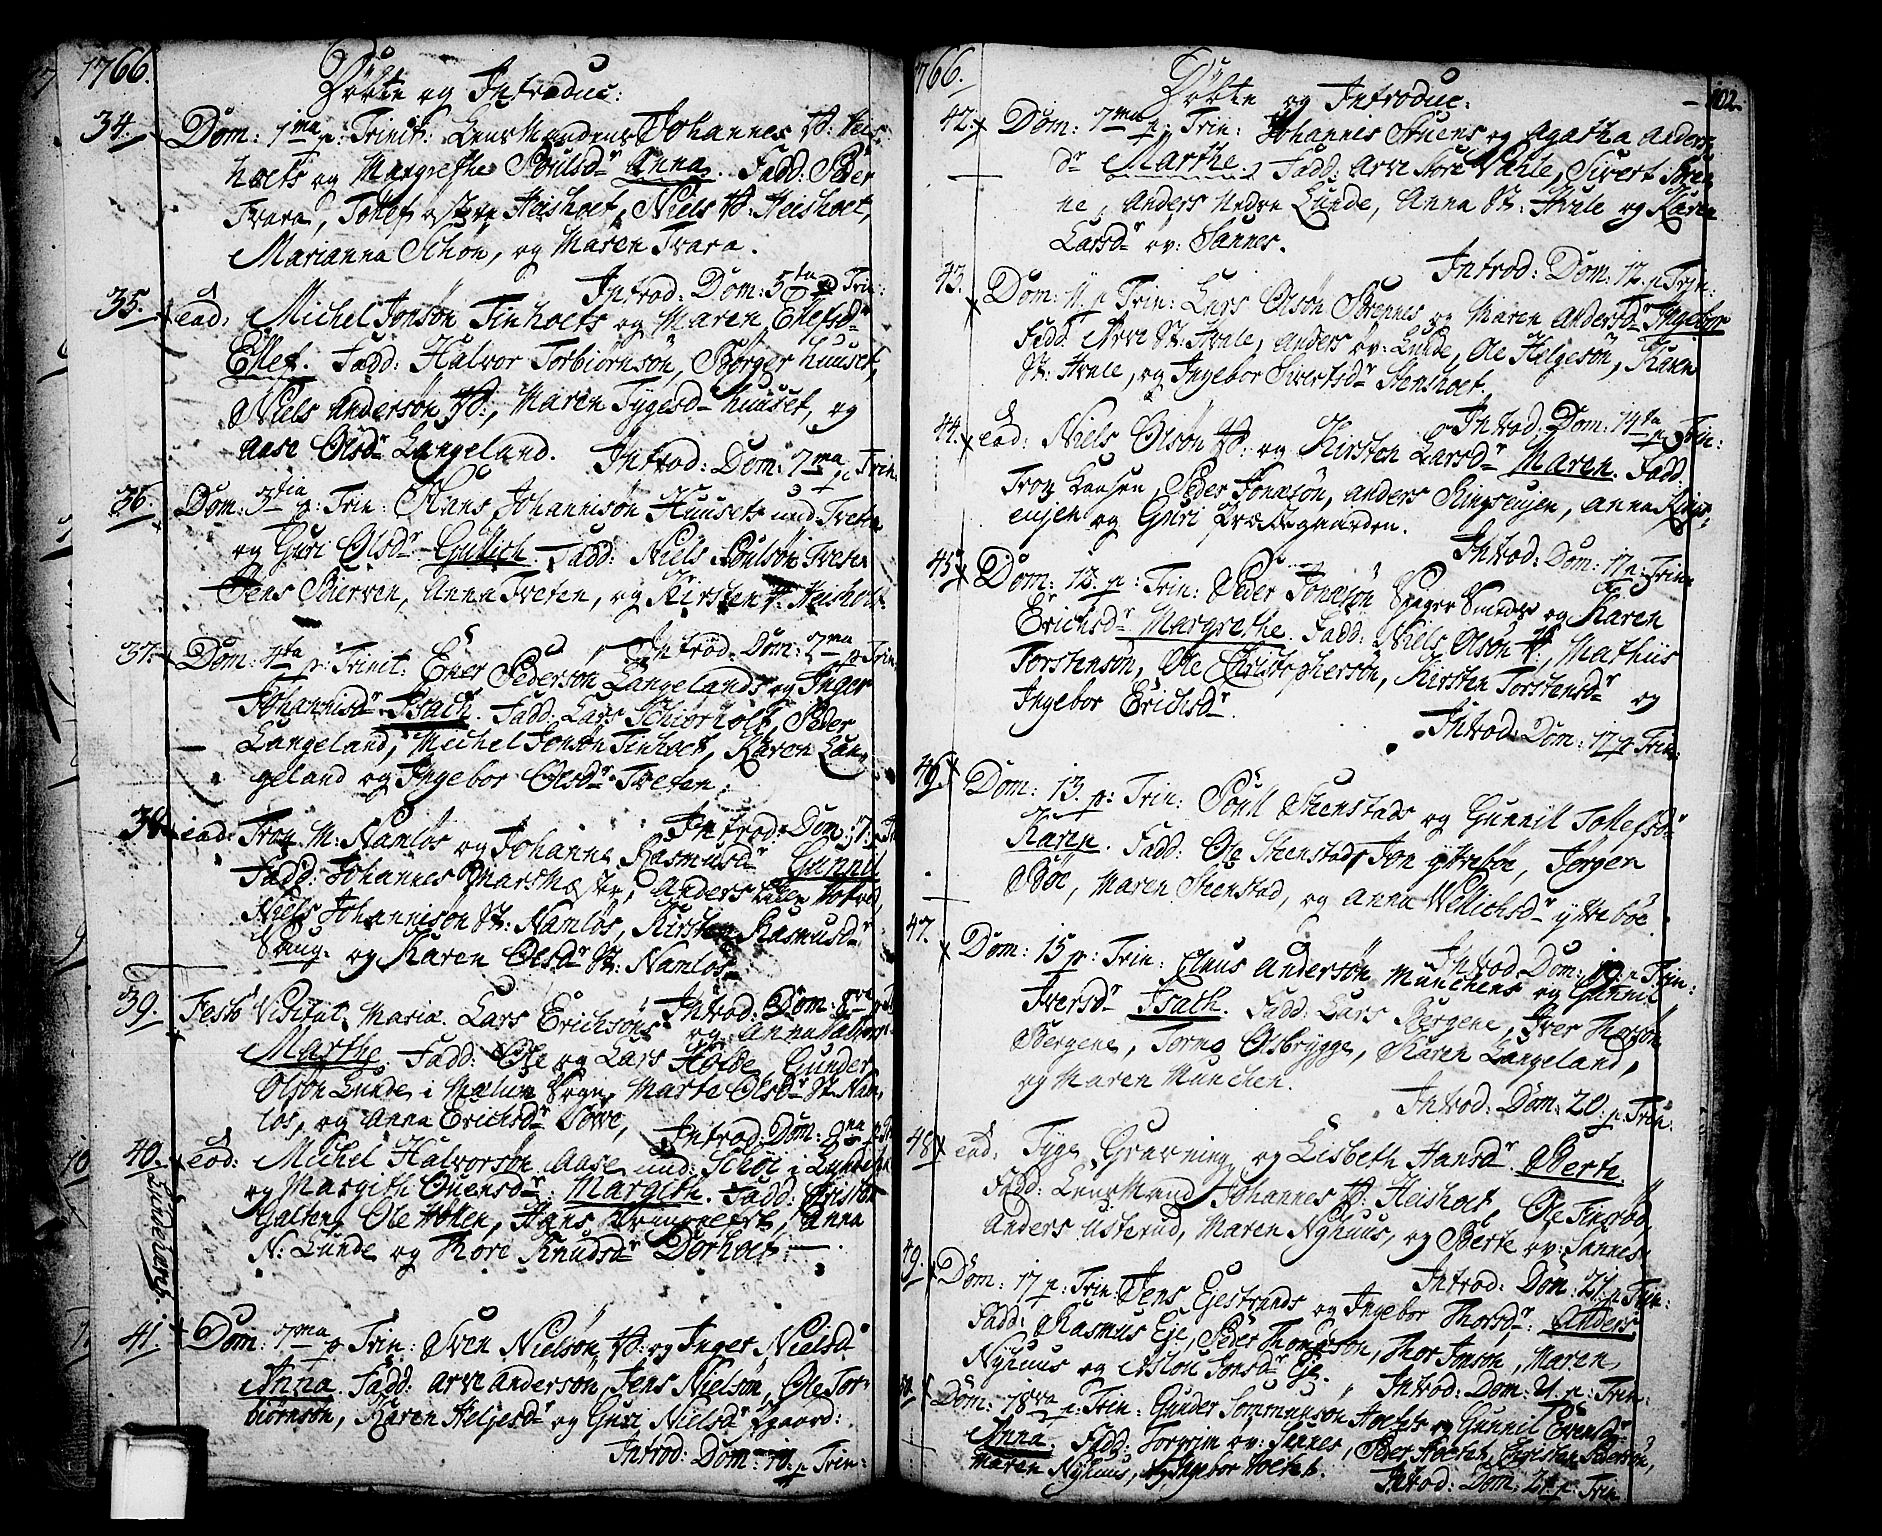 1766.
Döbte og Introduc:
34. Dom: 1ma p: Trinit: Lensmandens Johannes W: Heis-
hoets og Margrethe Poulsdr Anna. Fadd: Peder
Tvara, Tollef østre Heishoet, Niels W: Heishoet,
Marianna Schon, og Maren Tvara.
Introd: Dom: 5ta p Trin:
35. eod: Michel Jonsön Tinhoets og Maren Ellefsdr
Ellef. Fadd: Halvor Torbiörnsön, Börger huuset,
Niels Andersön W:, Maren Tygesdr huuset, og
Aase Olsdr Langeland.
Introd: Dom: 7ma p Trin.
36. Dom: 3tia p: Trin: Hans Johannisön Huusets und Tveten
og Guri Olsdr Gullich. Fadd: Niels Poulsön Tveten
Jens Bierven, Anna Tveten, og Kirsten W: Heishoet
Introd: Dom: 7ma p Trin:
37. Dom: 4ta p: Trinit: Ener Pedersön Langelands og Inger
Johannisdr Isach. Fadd: Lars Schiorholt, Peder
Langeland, Michel Jonsön Tinhoet, Karen Lan-
geland og Ingebor Olsdr Tveten.
Introd: Dom: 7 p Tr
38. eod: Tron M: Namlos og Johanne Rasmusdr Gunnil
Fadd: Johannes Marsmester, Anders
Niels Johannisön St: Namlös, Kirsten Rasmusdr
Haug. og Karen Olsdr St: Namlos
Introd: Dom: 8va p T
39. Festo Visitat. Mariæ. Lars Erichsöns og Anna
Marthe Fadd: Ole og Lars Holde, Gunder
Olsön Lunde i Mælum Sogn, Marte Olsdr St: Nam-
los, og Anna Erichsdr Towe,
Introd: Dom: 9na p Tr
40. eod: Michel Halvorsön Aase und: i
og Margith Ouensdr: Margith. Fadd: Kristen
Galten, Ole Hoken, Hans, Anna
N: Lunde og Thore Knudsdr Dorhoet:
41. Dom: 7ma p Trin: Sven Nielsön W: og Inger Nielsdr
Anna. Fadd: Arve Andersön, Jens Nielsön, Ole Tor-
biörnsön, Karen Helgesdr og Guri Nielsdr
Introd: Dom: 10. p Trin:
1766.
102.
Döbte og Introduc:
42. Dom: 7ma p: Trin: Johannis Stuens og Agatha Anders-
dr Marthe. Fadd: Arve store Vahle, Sivert
ne, Anders Nedre Lunde, Anna St: Hvale og Karen
Larsdr öv: Sannes.
Introd: Dom: 12. p Trin.
43. Dom: 11. p Trin: Lars Olsön Strennes og Maren Andersdr Ingebor
Fadd: Arve St: Hvale, Anders öv: Lunde, Ole Helgesön, Karen
St: Hvale, og Ingebor Sivertsdr Stenshoet.
Introd: Dom: 14ta p Trin:
44. eod: Niels Olsön W: og Kirsten Larsdr Maren. Fadd:
Tron Hansen, Peder Jonasön, Anders Ringseujen, Anna Ring-
eujen og Guri Præstegaarden.
Introd: Dom: 17 p: Trin:
45. Dom: 12. p: Trin: Peder Jonasön Smeds og Karen
Erichsdr Margrethe. Fadd: Niels Olsön W:, Mathiis
Torstensön, Ole Christophersön, Kirsten Torstensdr og
Ingebor Erichsdr.
Introd: Dom: 17 p Trin:
46. Dom: 13. p: Trin: Poull Steenstads og Gunnil Tollefsdr
Karen. Fadd: Ole Steenstad, Jon ÿttrebøe, Jörgen
Böe, Maren Steenstad, og Anna Wellichsdr ÿttreböe.
Introd: Dom: 19. p Trin:
47. Dom: 15 p: Trin: Claus Andersön Munchens og Gunnil
Iversdr Isach. Fadd: Lars Bergene, Iver Thorsön
Bergene, Tormo Olsbrygge, Karen Langeland,
og Maren Munchen.
Introd: Dom: 20. p Trin:
48. eod: Tyge Gravning og Lisbeth Hansdr Berte
Fadd: Lensmand Johannes W: Heishoet, Ole Finsröd,
Anders Usterud, Maren Nyhuus, og Berte öv: Sannes.
Introd: Dom: 21. p Trin:
49. Dom: 17 p: Trin: Jens Ejestrands og Ingebor Thorsdr: Anders
Fadd: Rasmus Eje, Peder Thomesön, Thor Jonsön, Maren
Nyhuus og Aslou Jonsdr Eje.
Introd: Dom: 21. p: Trin:
50. Dom: 18va p: Trin: Gunder Sommunsön Hoctets og Gunnil Evensdr
Anna. Fadd: Torgrim öv: Sannes, Peder Hoctet, Christen Pedersön,
Maren Nyhuus, og Ingebor Hoctet.
Introd: Dom: 21 p: Trin